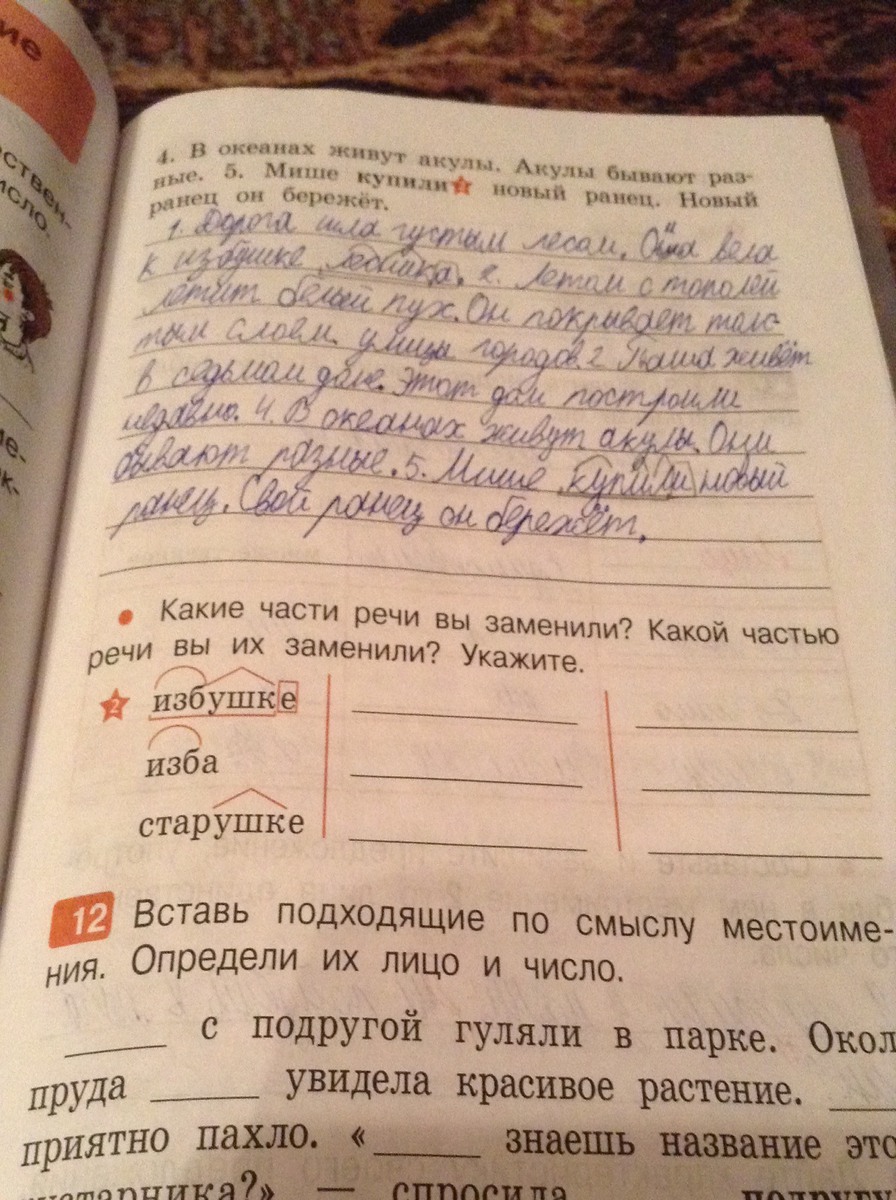 ие
ствен-
исло.
4. В океанах живут акулы. Акулы бывают раз-
ные. 5. Мише купили2 новый ранец. Новый
ранец он бережёт.
1. Дорога шла густым лесом. Она вела
к избушке лесника. 2. Летом с тополей
летит белый пух. Он покрывает толс-
тым слоем улицы городов. 2 Паша живёт
в седьмом доме. Этот дом построили
недавно. 4. В океанах живут акулы. Они
бывают разные. 5. Мише купили новый
ранец. Свой ранец он бережёт.
• Какие части речи вы заменили? Какой частью
речи вы их заменили? Укажите.
2 избушке
изба
старушке
12 Вставь подходящие по смыслу местоиме-
ния. Определи их лицо и число.
с подругой гуляли в парке. Окол
пруда увидела красивое растение.
приятно пахло. « знаешь название это
кустарника?» — спросила подруг